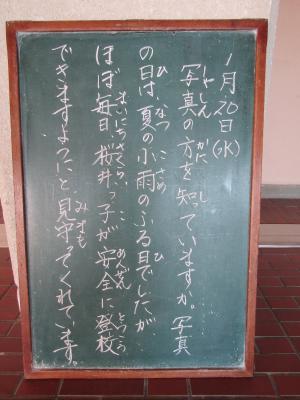 1月20日(K)
写真の方を知っていますか。写真
の日は、夏の小雨のふる日でしたが
ほぼ毎日、桜井っ子が安全に登校
できますようにと、見守ってくれています。
しゃしん かた し
ひ なつ こさめ ひ
まいにち さくらい こ あんぜん とうこう
みまも